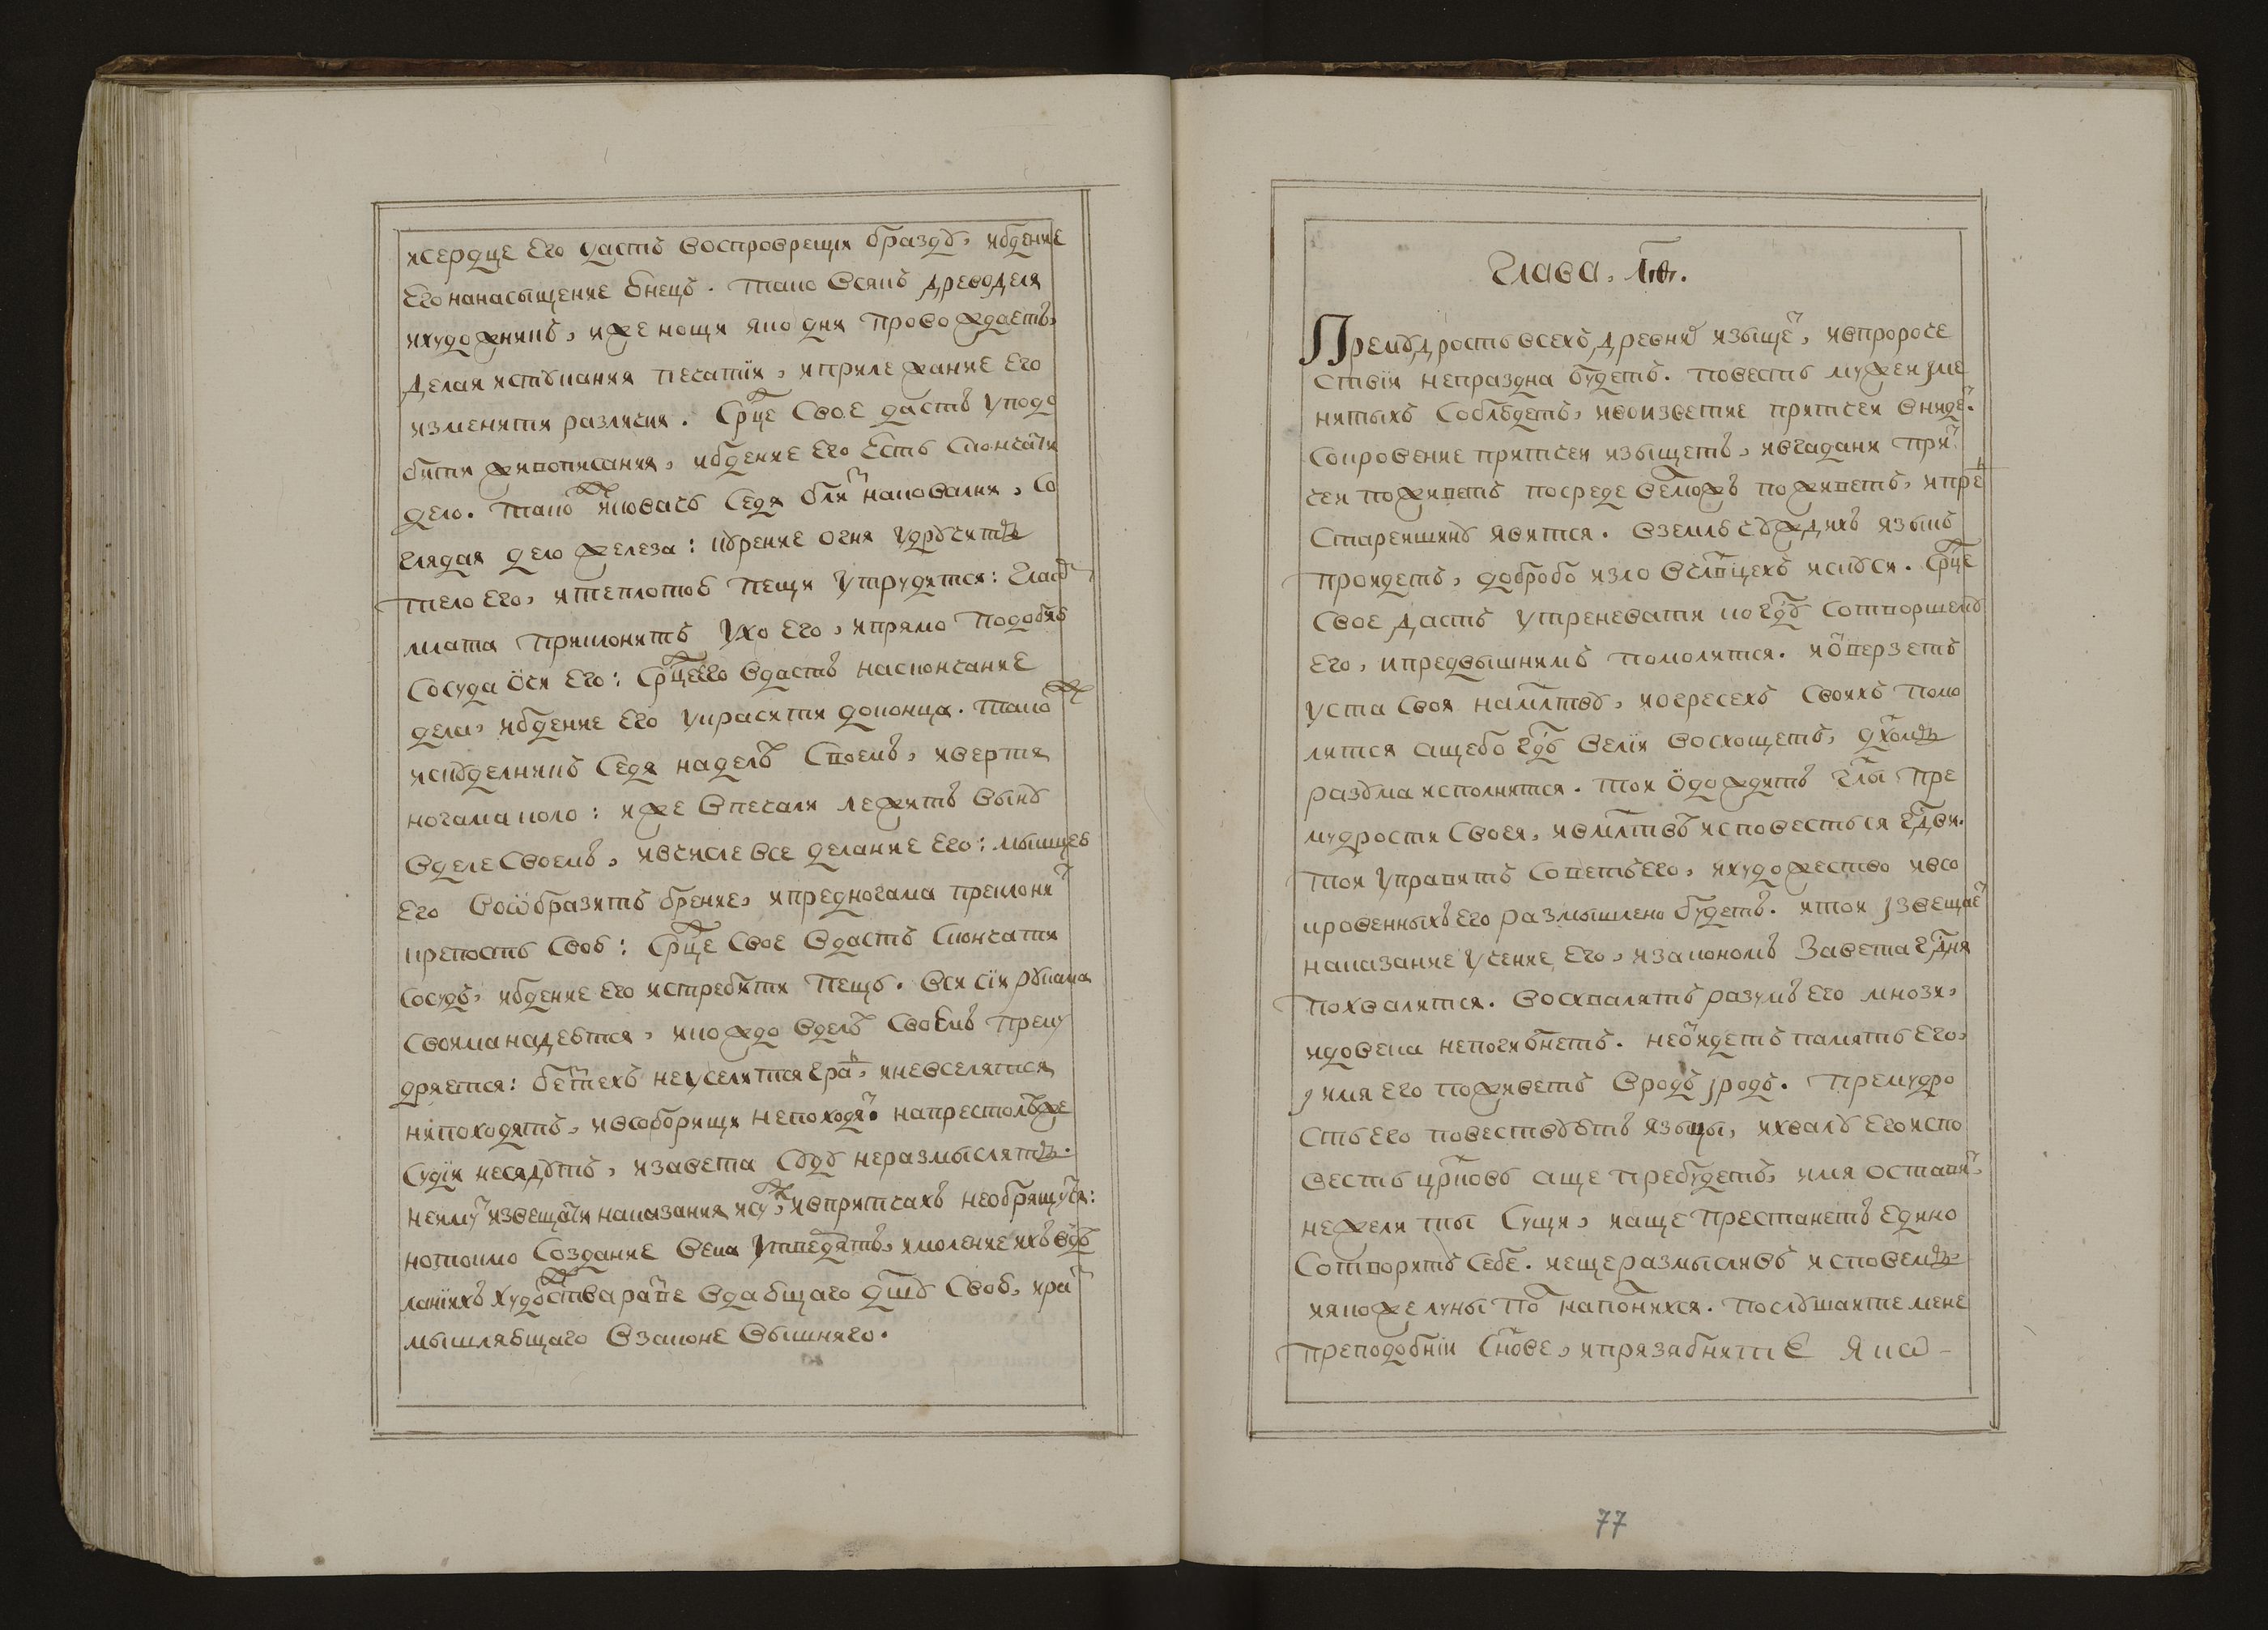 исердце его дасть воспроврещи бразду, ибдение
Его нанасыщение юнецъ. тако всякъ древоделя
ихудожникъ, иже нощи яко дни провождаетъ,
делая истукания печатїи, иприлежание его
изменити различия. Срⷣце Свое дастъ уподо
бити живописания, ибдение его Есть Скончати
дело. такоⷤ иковачь Седя блиⷥ наковални, Со
глядая дело железа: курение огня удручитъ
тело его, итеплотою пещи утрудится: Глаⷭ
млата приклонитъ Ухо Его, ипрямо подобию
Сосуда очи Его: Срⷣце его вдастъ наскончание
дела, ибдение Его украсити доконца. такоⷤ
искуделникъ Седя наделѣ Своемъ, ивертя
ногама коло: иже впечали лежитъ выну
вделе Своемъ, ивчисле все делание Его: мышцею
Его Воѡбразитъ брение, ипредногама преклониⷮ
крепость Свою: Срⷣце Свое вдастъ Скончати
сосудъ, ибдение его истребити пещъ. вси сїи рукама
Своима надеютсѧ, икождо вделѣ Своемъ прему
дряется: беⷥтехъ неуселится граⷣ, иневселятся
нипоходятъ, ивсоборищи непоходяⷮ. напрестолѣже
судїи несядутъ, изавета суду неразмыслятъ.
неимуⷮ извещати наказания исуⷣ, ивпритчахъ необрящуⷮся:
нотокмо Создание века утвердятъ, имоление ихъ вдѣ
ланїихъ художства развее вдающаго дшу Свою, ираⷥ
мышляющаго взаконе вышняго.
Глава, лѳ.
Премудрость всехъ древниⷯ изыщеⷮ, ивпророче
ствїи непраздна будетъ. повесть мужей име
нитыхъ Соблюдетъ, ивоизветие притчей внидеⷮ.
Сокровение притчей изыщетъ, ивгадани приⷮ
чей поживетъ посреде велможъ поживетъ, ипреⷣ
Старейшины явится. вземлю чуждихъ языкъ
пройдетъ, добробо изло вчл҃вцехъ искуси. Срⷣце
Свое дастъ утреневати ко гдⷭу Сотворшему
Его, ипредвышнимъ помолится. иоⷮверзетъ
уста Своя намлтву, иогресехъ Своихъ помо
лится ащебо гдⷭь велїи восхощетъ, дхомъ
разума исполнится. той одождитъ глы пре
мудрости Своея, ивмлтвѣ исповестъся гдⷭви.
той Управитъ Советъ его, ихудожество ивсо
кровенныхъ его размышлено будетъ. итой извещаеⷮ
наказание учение Его, изакономъ Завета гдⷭня
похвалится. восхвалятъ разумъ его мнози,
идовека непогибнетъ. неоⷮидетъ память Его,
імя его поживетъ вродъ іродъ. премудро
сть Его повествуютъ языцы, ихвалу Его испо
весть црковь аще пребудетъ, имя оставиⷮ,
нежели тысущи, иаще престанетъ едино
Сотворитъ Себе. иеще размысливъ исповемъ
иякоже луны поⷧ наполнихся. послушайте мене
преподобнїи Снове, ипрязябните Якѡ-
77